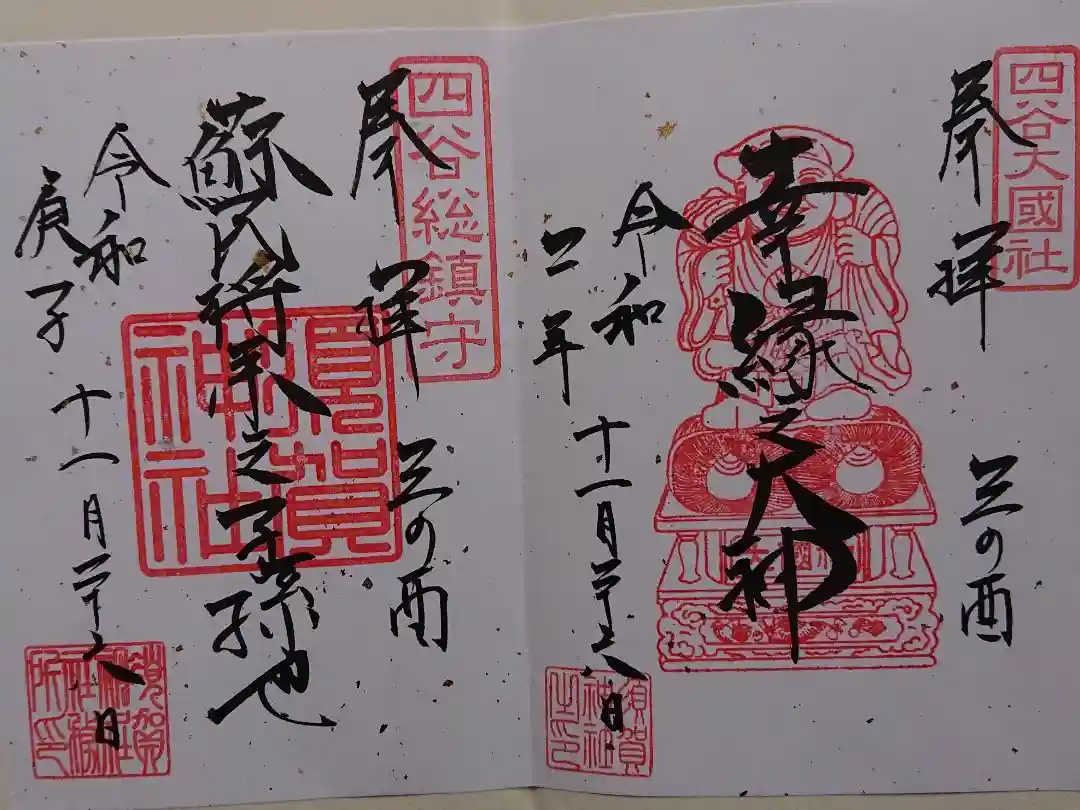 四谷大國社
奉拝 三の酉
幸縁之大神
令和 十一月二十六日
二年
須賀神社之印
四谷総鎮守
奉拝 三の酉
須賀神社
蘇民将来之子孫也
令和 十一月二十六日
庚子
須賀神社社務所印